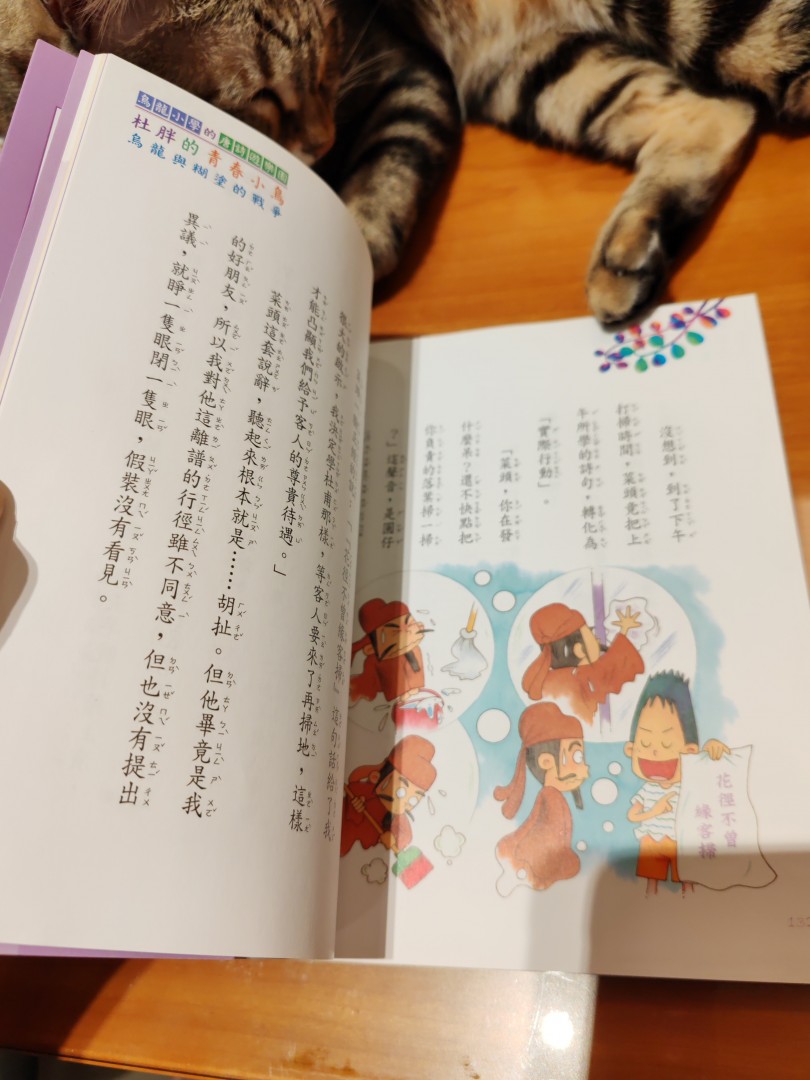 沒想到，到了下午
打掃時間，菜頭竟把上
午所學的詩句，轉化為
「實際行動」。
「菜頭，你在發
什麼呆？還不快點把
你負責的落葉掃一掃
？」這聲音，是圓仔
花徑不曾
緣客掃
132
烏龍小學的唐詩遊樂園
杜胖的青春小鳥
烏龍與糊塗的戰爭
「花徑不曾緣客掃」這句話給了我
極大的啟示，我決定學杜甫那樣，等客人要來了再掃地，這樣
才能凸顯我們給予客人的尊貴待遇。」
菜頭這套說辭，聽起來根本就是……胡扯。但他畢竟是我
的好朋友，所以我對他這離譜的行徑雖不同意，但也沒有提出
異議，就睜一隻眼閉一隻眼，假裝沒有看見。